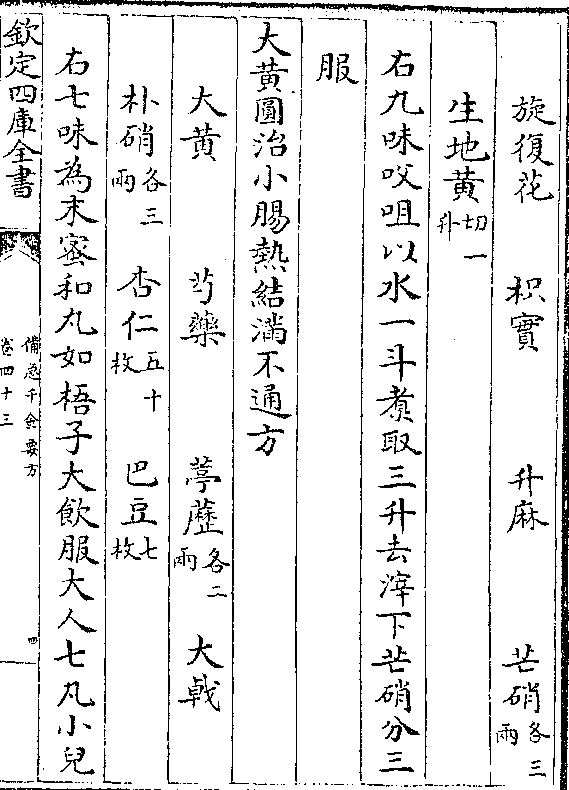 旋復花 枳實 升麻 芒硝各三兩
生地黄切一升
右九味㕮咀以水一斗煑取三升去滓下芒硝分三
服
大黄圓治小腸熱結滿不通方
大黄 芍藥 葶藶各二兩 大戟
朴硝各三兩 杏仁五十枚 巴豆七枚
右七味為末蜜和丸如梧子大飲服大人七凡小兒
欽定四庫全書
備急千金要方
卷四十三
四